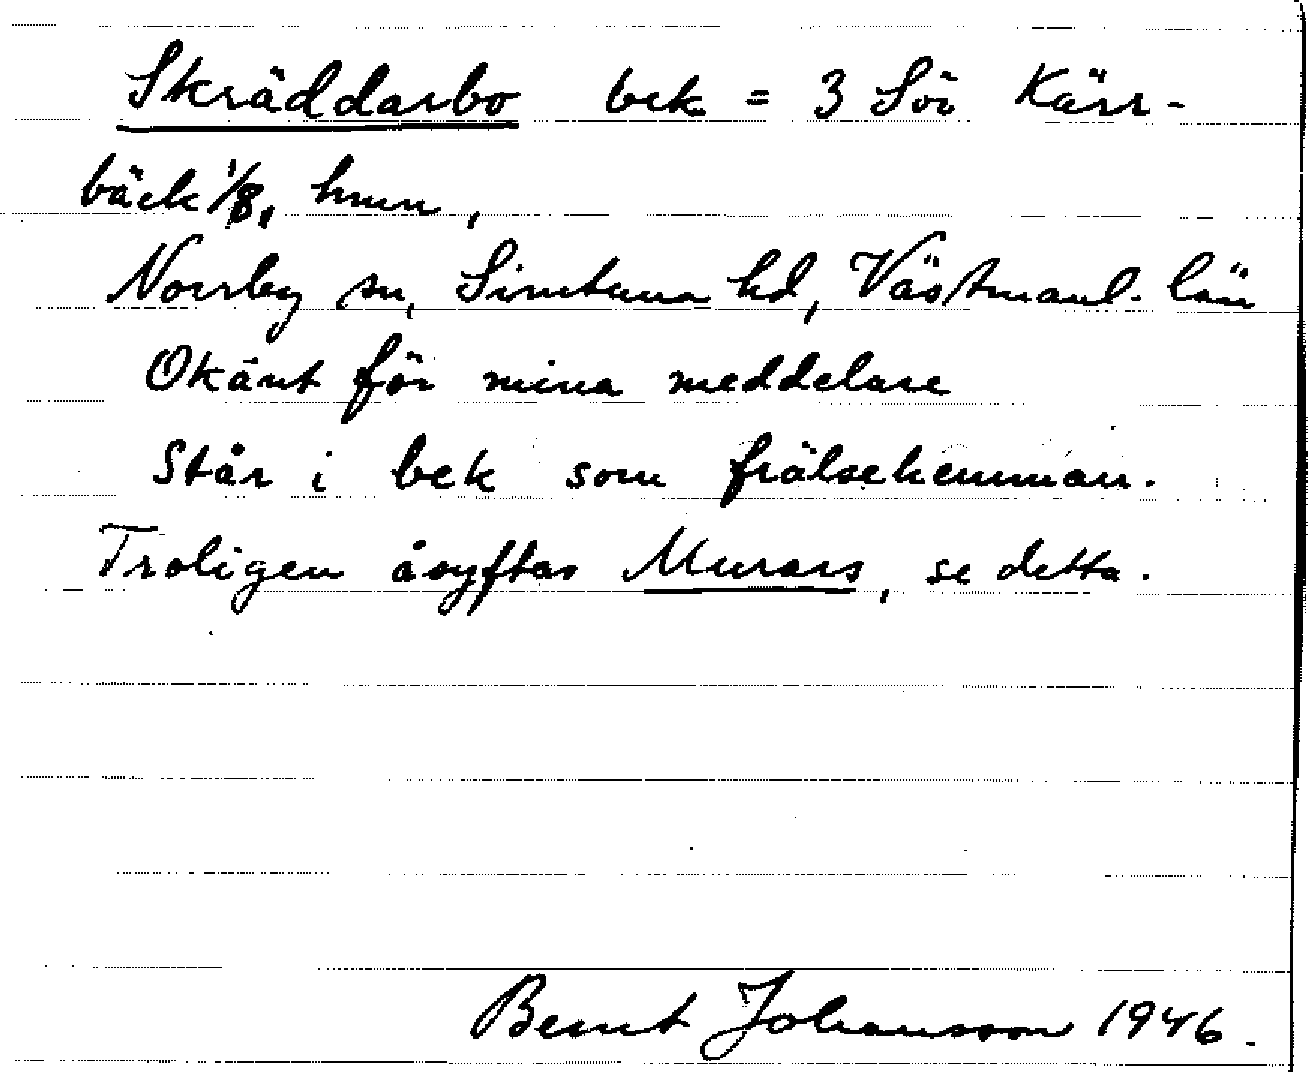 Skräddarbo bek = 3 Sör Kärr-
bäck 1/8, hmn,
Norrby sn, Simtuna hd, Västmanl. län
Okänt för mina meddelare
Står i bek som frälsehemman.
Troligen åsyftas Murars, se detta.
Bernt Johansson 1946.